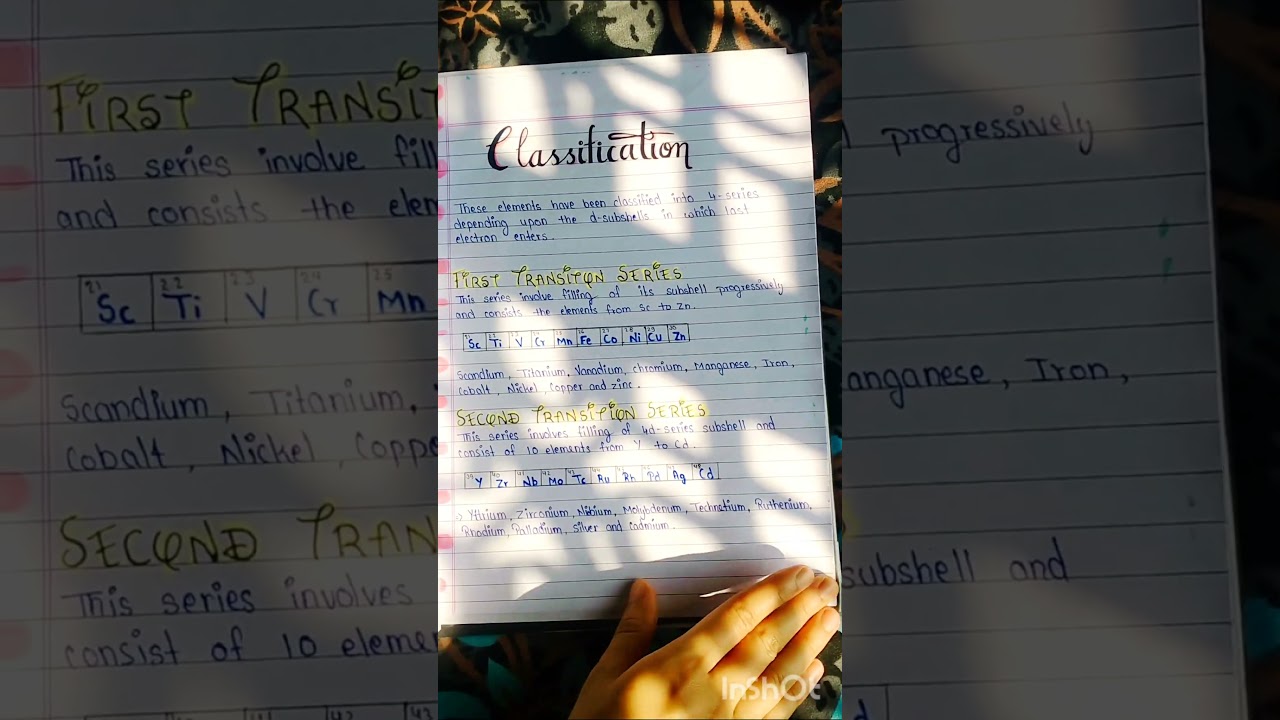 Classification
These elements have been classified into 4-series
depending upon the d-subshells in which last
electron enters.
FIRST TRANSITION SERIES
This series involve filling of its subshell progressively
and consists the elements from Sc to Zn.
21 Sc 22 Ti 23 V 24 Cr 25 Mn 26 Fe 27 Co 28 Ni 29 Cu 30 Zn
Scandium, Titanium, Vanadium, chromium, Manganese, Iron,
Cobalt, Nickel, Copper and zinc.
SECOND TRANSITION SERIES
This series involves filling of 4d-series subshell and
consist of 10 elements from Y to Cd.
39 Y 40 Zr 41 Nb 42 Mo 43 Tc 44 Ru Rh Pd Ag 48 Cd
Yttrium, Zirconium, Nibium, Molybdenum, Technetium, Ruthenium,
Rhodium, Palladium, Silver and cadmium.
InShOt